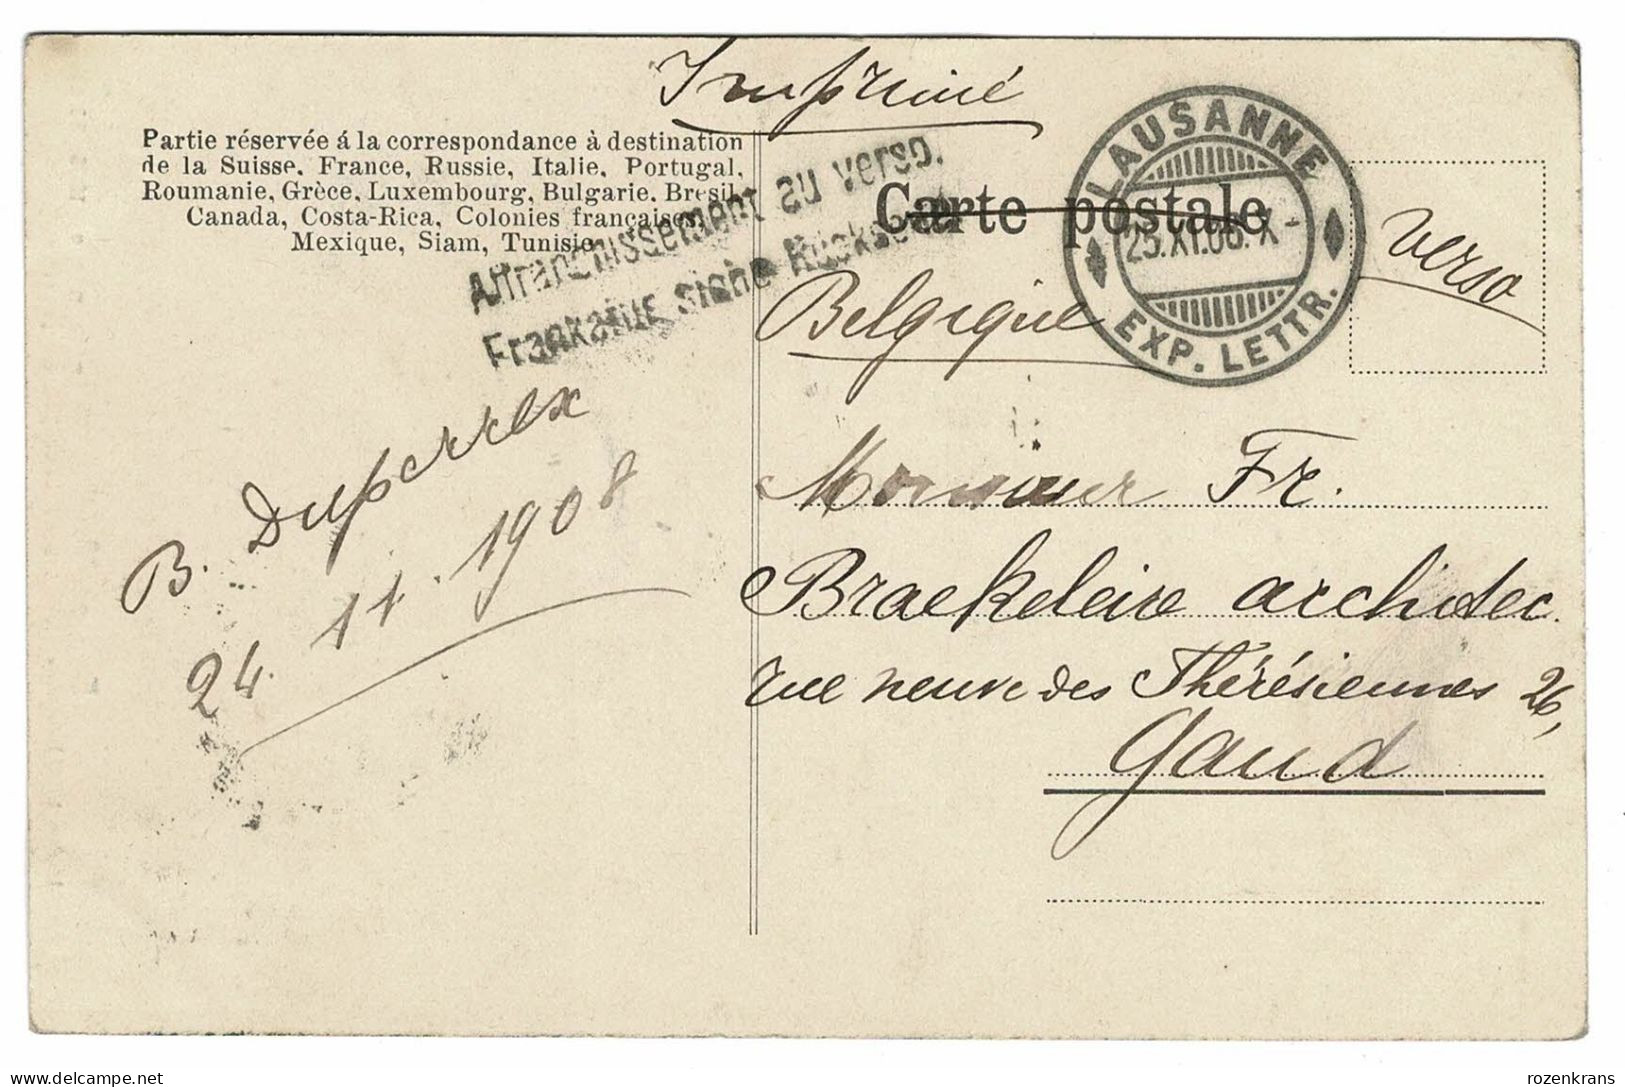 Imprimé
Partie réservée á la correspondance à destination
de la Suisse, France, Russie, Italie, Portugal,
Roumanie, Grèce, Luxembourg, Bulgarie, Bresil,
Canada, Costa-Rica, Colonies françaises,
Mexique, Siam, Tunisie
Affranchissement au verso.
Frankatur siehe Rückseite
Carte postale
LAUSANNE
25.XI.08. X-
EXP. LETTR.
verso
Belgique
B. Duperrex
24. 11. 1908
Monsieur Fr.
Braekeleire architec.
rue neuve des Thérésiennes 26,
Gand
rozenkrans